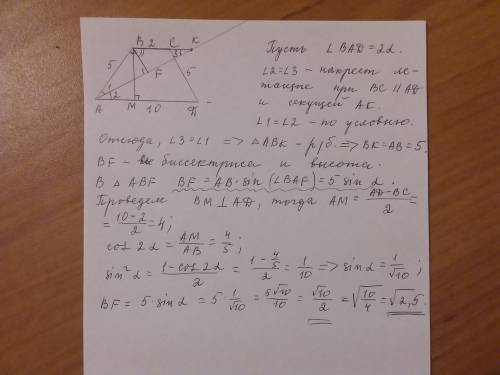 B 2 C K
5 1 F 5
A 2 M 10 D
Пусть ∠BAD = 2α.
∠2=∠3 - накрест ле-
жащие при BC ∥ AD
и секущей AK.
∠1=∠2 - по условию.
Отсюда, ∠3=∠1 => △ABK - р/б. => BK=AB=5.
BF - биссектриса и высота.
В △ ABF BF = AB·sin(∠BAF) = 5 sin α.
Проведем BM ⊥ AD, тогда AM = (AD-BC)/2 =
= (10-2)/2 = 4;
cos 2α = AM/AB = 4/5;
sin²α = (1-cos 2α)/2 = (1-4/5)/2 = 1/10 => sin α = 1/√10;
BF = 5·sin α = 5·1/√10 = 5√10/10 = √10/2 = √(10/4) = √2,5.